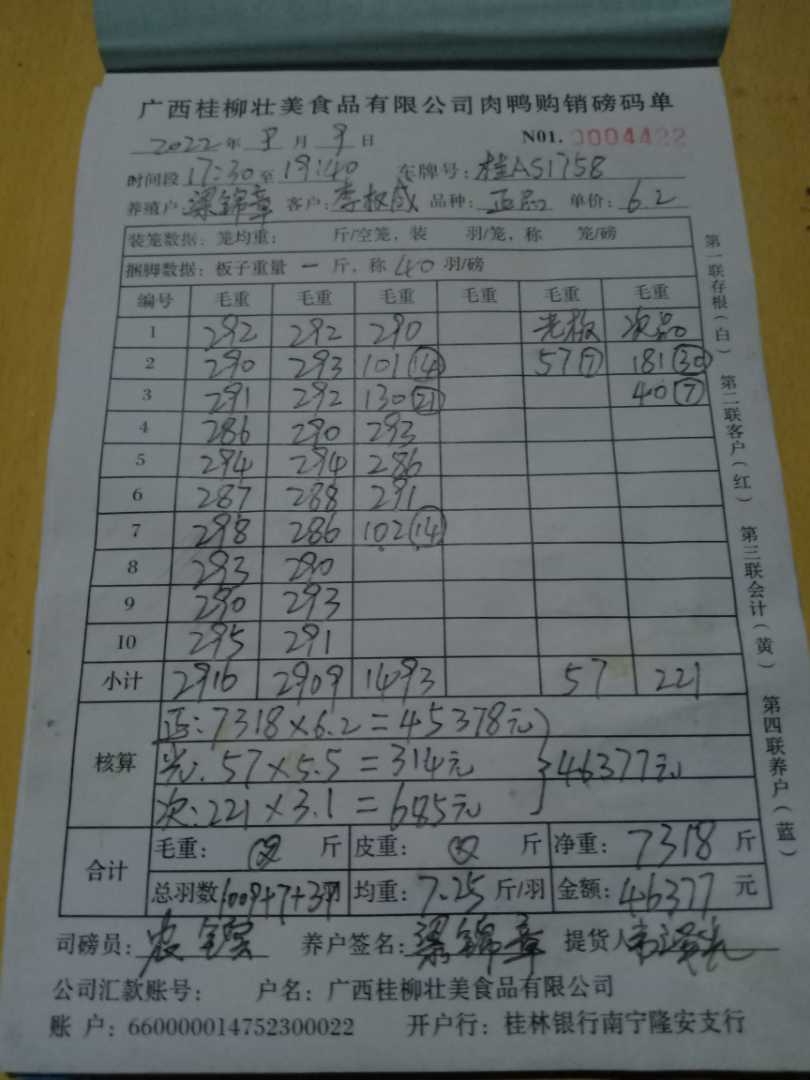 广西桂柳壮美食品有限公司肉鸭购销磅码单
2022年 8月 9日 N01. 0004422
时间段 17:30 至 19:40 车牌号: 桂AS1758
养殖户: 梁锦章 客户: 李权成 品种: 正品 单价: 6.2
装笼数据: 笼均重: 斤/空笼, 装 羽/笼, 称 笼/磅
捆脚数据: 板子重量 一 斤, 称 40 羽/磅
编号 毛重 毛重 毛重 毛重 毛重 毛重
1 292 292 290 光板 次品
2 290 293 101(14) 57(7) 181(30)
3 291 292 130(21) 40(7)
4 286 290 293
5 294 294 286
6 287 288 291
7 298 286 102(14)
8 293 290
9 290 293
10 295 291
小计 2916 2909 1493 57 221
核算
正: 7318×6.2=45378元
光: 57×5.5=314元 }46377元
次: 221×3.1=685元
合计
毛重: 斤 皮重: 斤 净重: 7318 斤
总羽数 1009+7+37 均重: 7.25 斤/羽 金额: 46377 元
司磅员: 养户签名: 梁锦章 提货人
公司汇款账号: 户名: 广西桂柳壮美食品有限公司
账 户: 660000014752300022 开户行: 桂林银行南宁隆安支行
第一联存根(白) 第二联客户(红) 第三联会计(黄) 第四联养户(蓝)